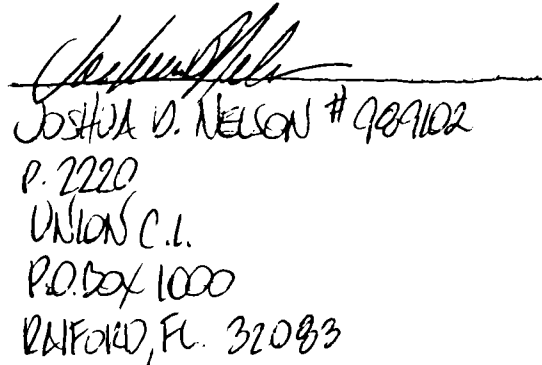 Joshua D. Nelson
JOSHUA D. NELSON # 989102
P. 2220
UNION C.I.
P.O. BOX 1000
RAIFORD, FL. 32083